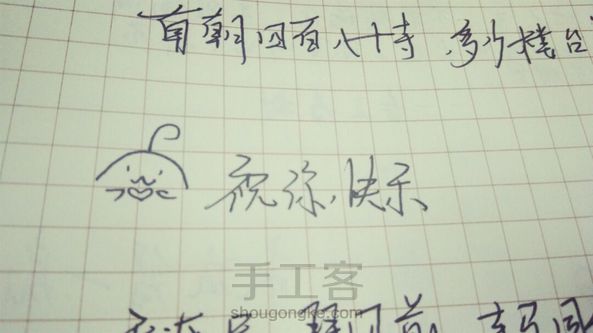 南朝四百八十寺 多少楼台
祝你快乐
手工客
shougongke.com